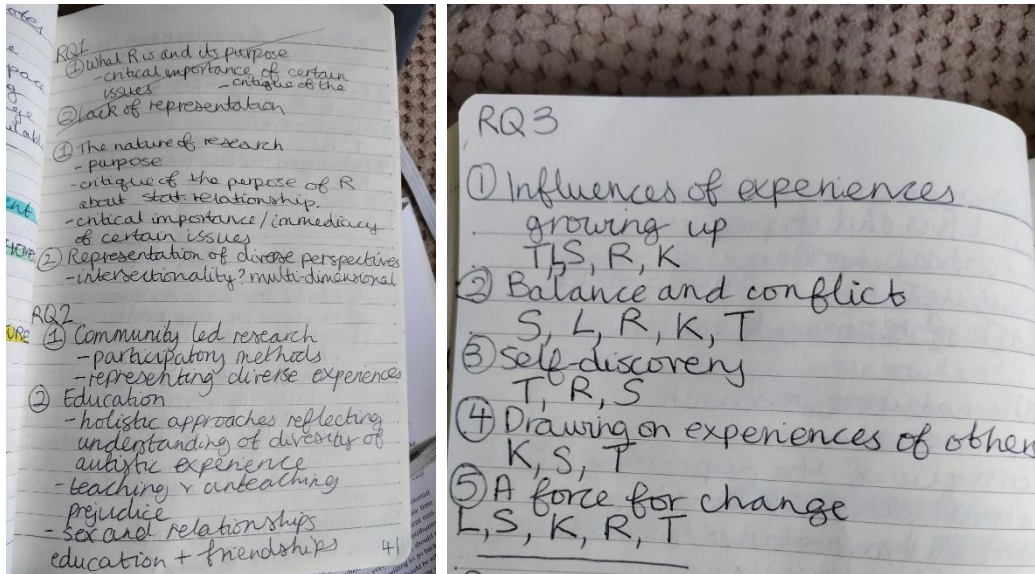 RQ1
① What R is and its purpose
- critical importance of certain
issues - critique of the
② Lack of representation
① The nature of research
- purpose
- critique of the purpose of R
about stat. relationship.
- critical importance / immediacy
of certain issues
② Representation of diverse perspectives
- intersectionality? multi-dimensional
RQ2
① Community led research
- participatory methods
- representing diverse experiences
② Education
- holistic approaches reflecting
understanding of diversity of
autistic experience
- teaching v unteaching
prejudice
- sex and relationships
education + friendships 41
RQ3
① Influences of experiences
growing up
T, L, S, R, K
② Balance and conflict
S, L, R, K, T
③ Self-discovery
T, R, S
④ Drawing on experiences of other
K, S, T
⑤ A force for change
L, S, K, R, T